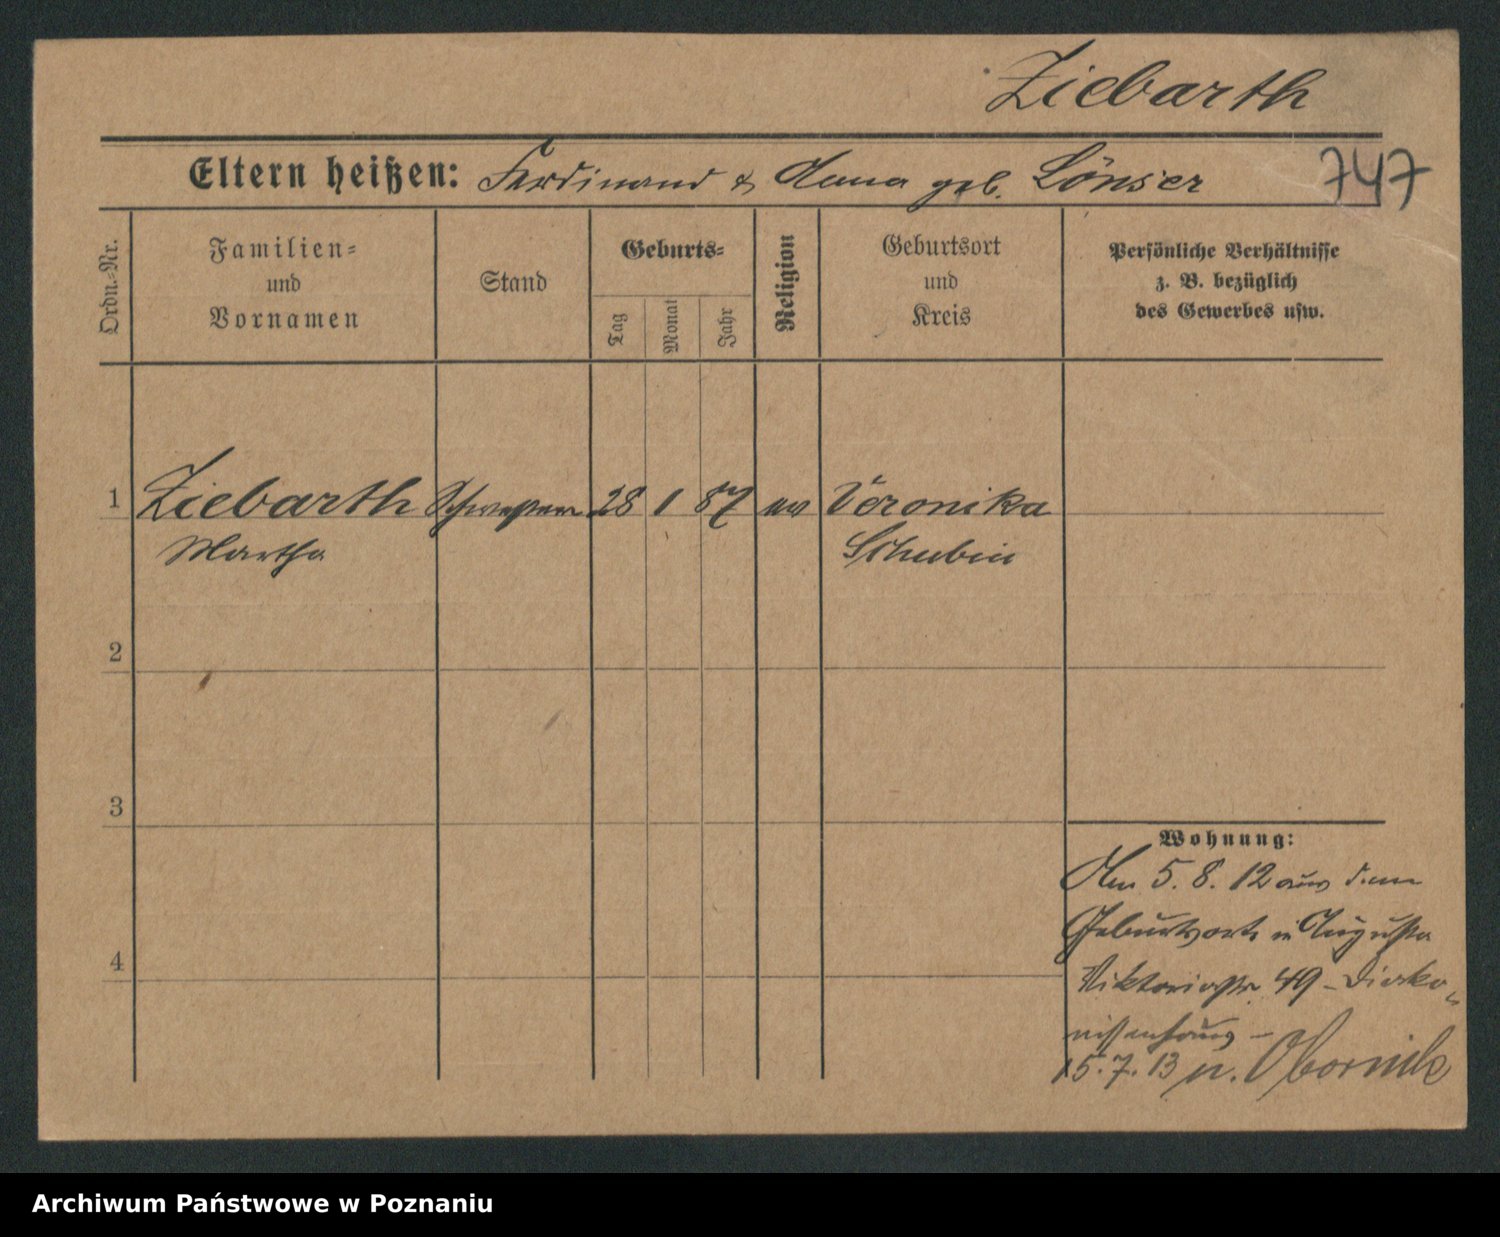 Ziebarth
Eltern heißen: Ferdinand & Anna geb. Lönser
747
Ordn.-Nr.
Familien-
und
Vornamen
Stand
Geburts-
Tag
Monat
Jahr
Religion
Geburtsort
und
Kreis
Persönliche Verhältnisse
z. B. bezüglich
des Gewerbes usw.
1 Ziebarth Schwester 28 1 87 ev Veronika
Martha Schubin
2
3
4
Wohnung:
Am 5. 8. 12 aus dem
Geburtsort in Augusta
Viktoriastr. 49 - Diako-
nissenhaus -
15.7.13 n. Obornik
Archiwum Państwowe w Poznaniu